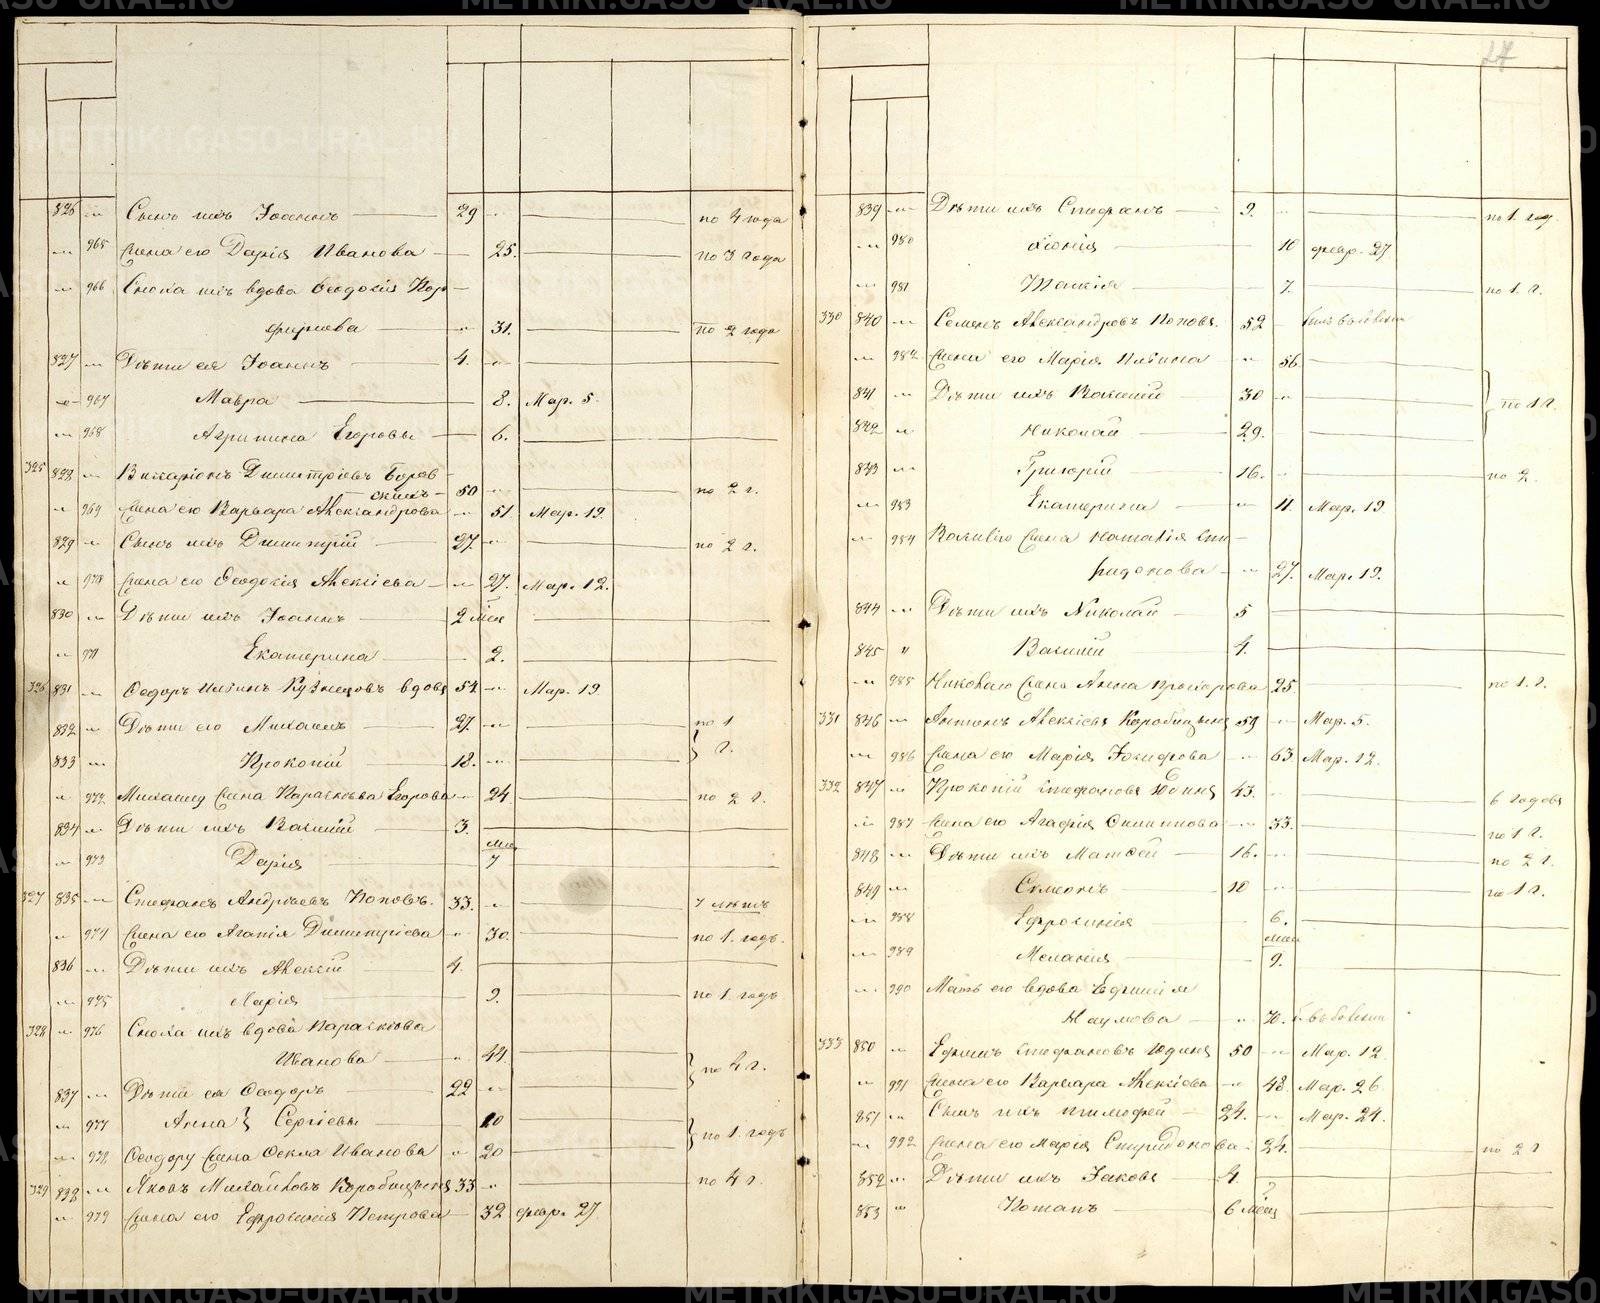 826 " Сынъ ихъ Іоаннъ 29 " по 4 года
" 965 Жена его Дарія Иванова 25. по 3 года
" 966 Сноха ихъ вдова Ѳеодосія Пор-
фирьева " 31. по 2 года
827 " Дѣти ея Іоаннъ 4. "
" 967 Мавра 8. Мар. 5.
" 968 Агрипина Егоровы 6.
325 828 " Димитріевъ Боров-
скихъ 50 " по 2 г.
" 969 Жена его Варвара Александрова " 51. Мар. 19.
829 " Сынъ ихъ Димитрій 27. " по 2 г.
" 970 Жена его Ѳеодосія Алексіева " 27. Мар. 12.
830 " Дѣти ихъ Іоаннъ 2 мѣс
" 971 Екатерина 2.
326 831 " Ѳеодоръ Ильинъ Кузнецовъ вдовъ 54 " Мар. 19
832 " Дѣти его Михаилъ 27. " по 1
833 " Прокопій 18. " } г.
" 972 Михаилу Жена Параскева Егорова " 24 по 2 г.
834 " Дѣти ихъ Василій 3.
" 973 Дарія мѣс 7
327 835 " Стефанъ Андреевъ Поповъ. 33. " 7 лѣтъ
" 974 Жена его Агапія Димитріева " 30. по 1. годъ.
836 " Дѣти ихъ Алексій 4.
" 975 Марія 9. по 1. годъ
328 " 976 Сноха ихъ вдова Параскева
Иванова " 44. } по 4 г.
837 " Дѣти ея Ѳеодоръ 22 "
" 977 Анна } Сергіевы 20 } по 1. годъ
" 978 Ѳеодору Жена Ѳекла Иванова " 20
329 838 " Яковъ Михайловъ Коробицынъ 33 " по 4 г.
" 979 Жена его Ефросинія Петрова 32 февр. 27
27
839 " Дѣти ихъ Стефанъ 9. " по 1. год.
" 980 Ксенія 10 февр. 27
" 981 Таисія 7. по 1. г.
330 840 " Семенъ Александровъ Поповъ. 52
" 982 Жена его Марія Ильина " 56.
841 " Дѣти ихъ Василій 30 " } по 1 г.
842 " Николай 29.
843 " Григорій 16. " по 2
" 983 Екатерина " 11. Мар. 19
" 984 Василію Жена Наталія Спи-
ридонова " 27. Мар. 19.
844 " Дѣти ихъ Николай 5
845 " Василій 4.
" 985 Николаю Жена Анна Прохорова 25 по 1. г.
331 846 " Антонъ Алексіевъ Коробицынъ 59 " Мар. 5.
" 986 Жена его Марія Іосифова " 63. Мар. 12.
332 847 " Прокопій Стефановъ Юдинъ 43. " 6 годовъ
" 987 Жена его Агафія Филиппова " 33. по 1 г.
848 " Дѣти ихъ Матѳей 16. " по 2 г.
849 " Симеонъ 10 " по 1 г.
" 988 Ефросинія 6.
" 989 Меланія мѣс 9.
" 990 Мать его вдова Евфимія
Наумова " 70.
333 850 " Ефимъ Стефановъ Юдинъ 50 " Мар. 12
" 991 Жена его Варвара Алексіева " 48. Мар. 26.
851 " Сынъ ихъ Тимофей 24. " Мар. 24.
" 992 Жена его Марія Спиридонова " 24. по 2 г
852 " Дѣти ихъ Іаковъ 4.
853 " Потапъ 6 мѣсяц